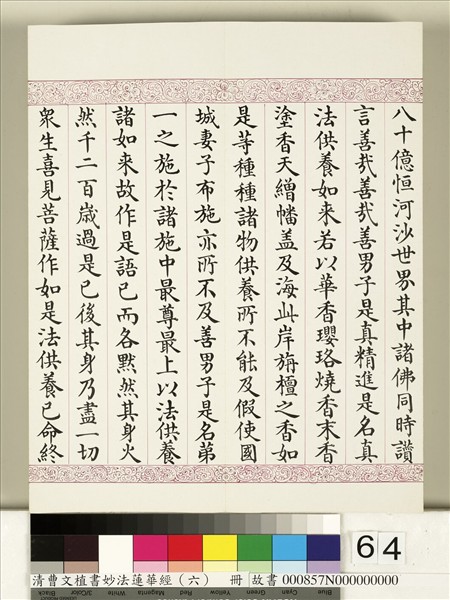 八十億恒河沙世界其中諸佛同時讚
言善哉善哉善男子是真精進是名真
法供養如来若以華香瓔珞燒香末香
塗香天繒幡盖及海此岸旃檀之香如
是等種種諸物供養所不能及假使國
城妻子布施亦所不及善男子是名第
一之施於諸施中最尊最上以法供養
諸如来故作是語已而各黙然其身火
然千二百歲過是已後其身乃盡一切
衆生喜見菩薩作如是法供養已命終
64
清曹文植書妙法蓮華經（六） 冊 故書 000857N000000000
Black 3/Color White Magenta Red Yellow Green Cyan Blue